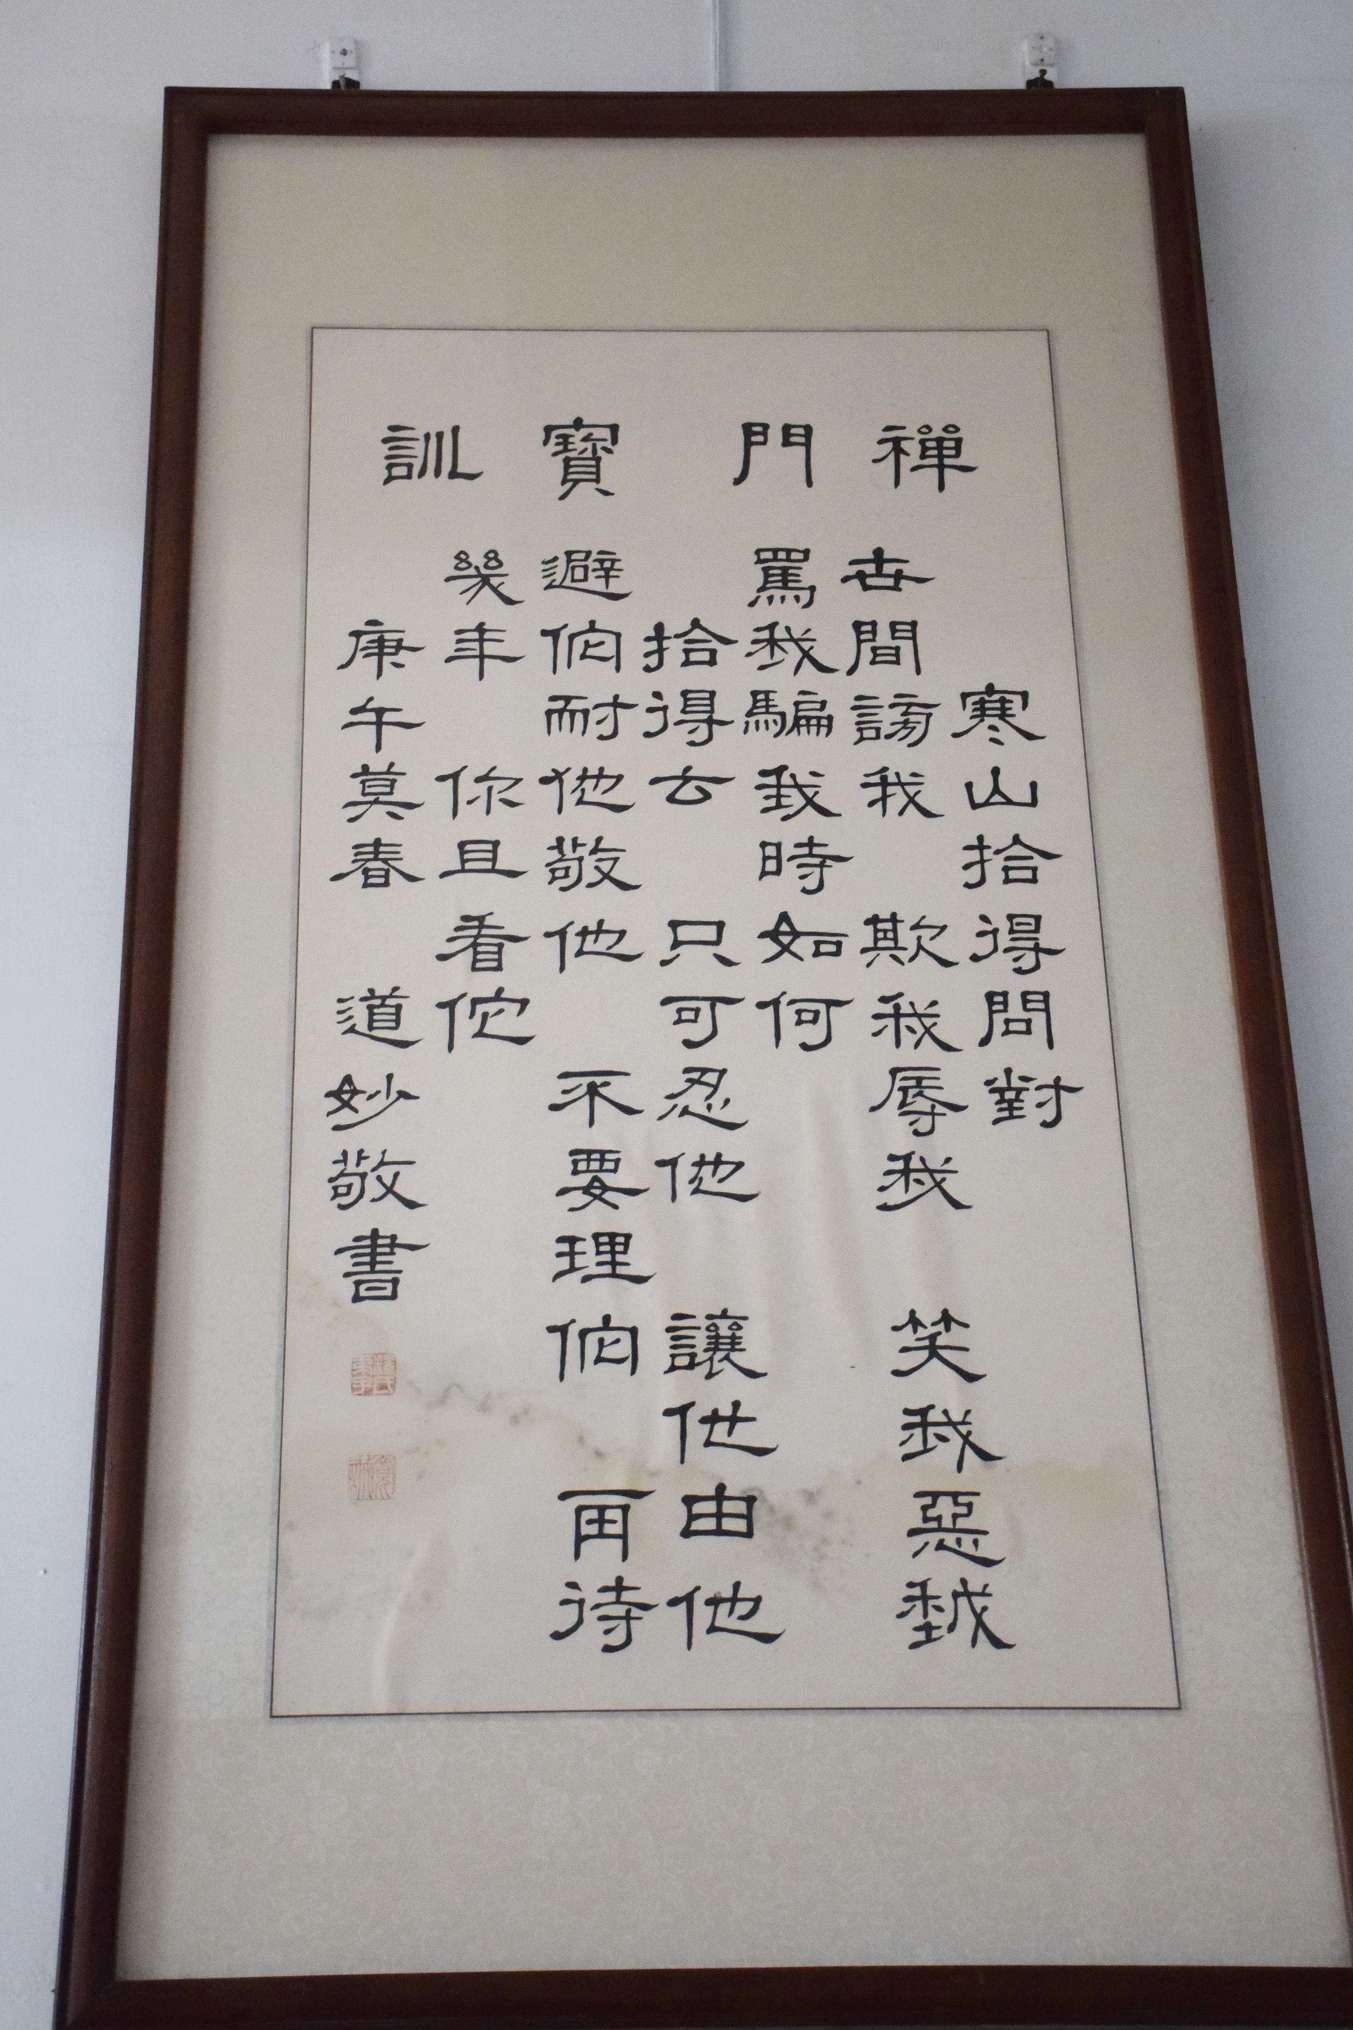 禪門寶訓
寒山拾得問對
世間謗我 欺我辱我 笑我惡我
罵我騙我時如何
拾得云 只可忍他 讓他由他
避佗耐他敬他 不要理佗 再待
幾年 你且看佗
庚午莫春 道妙敬書